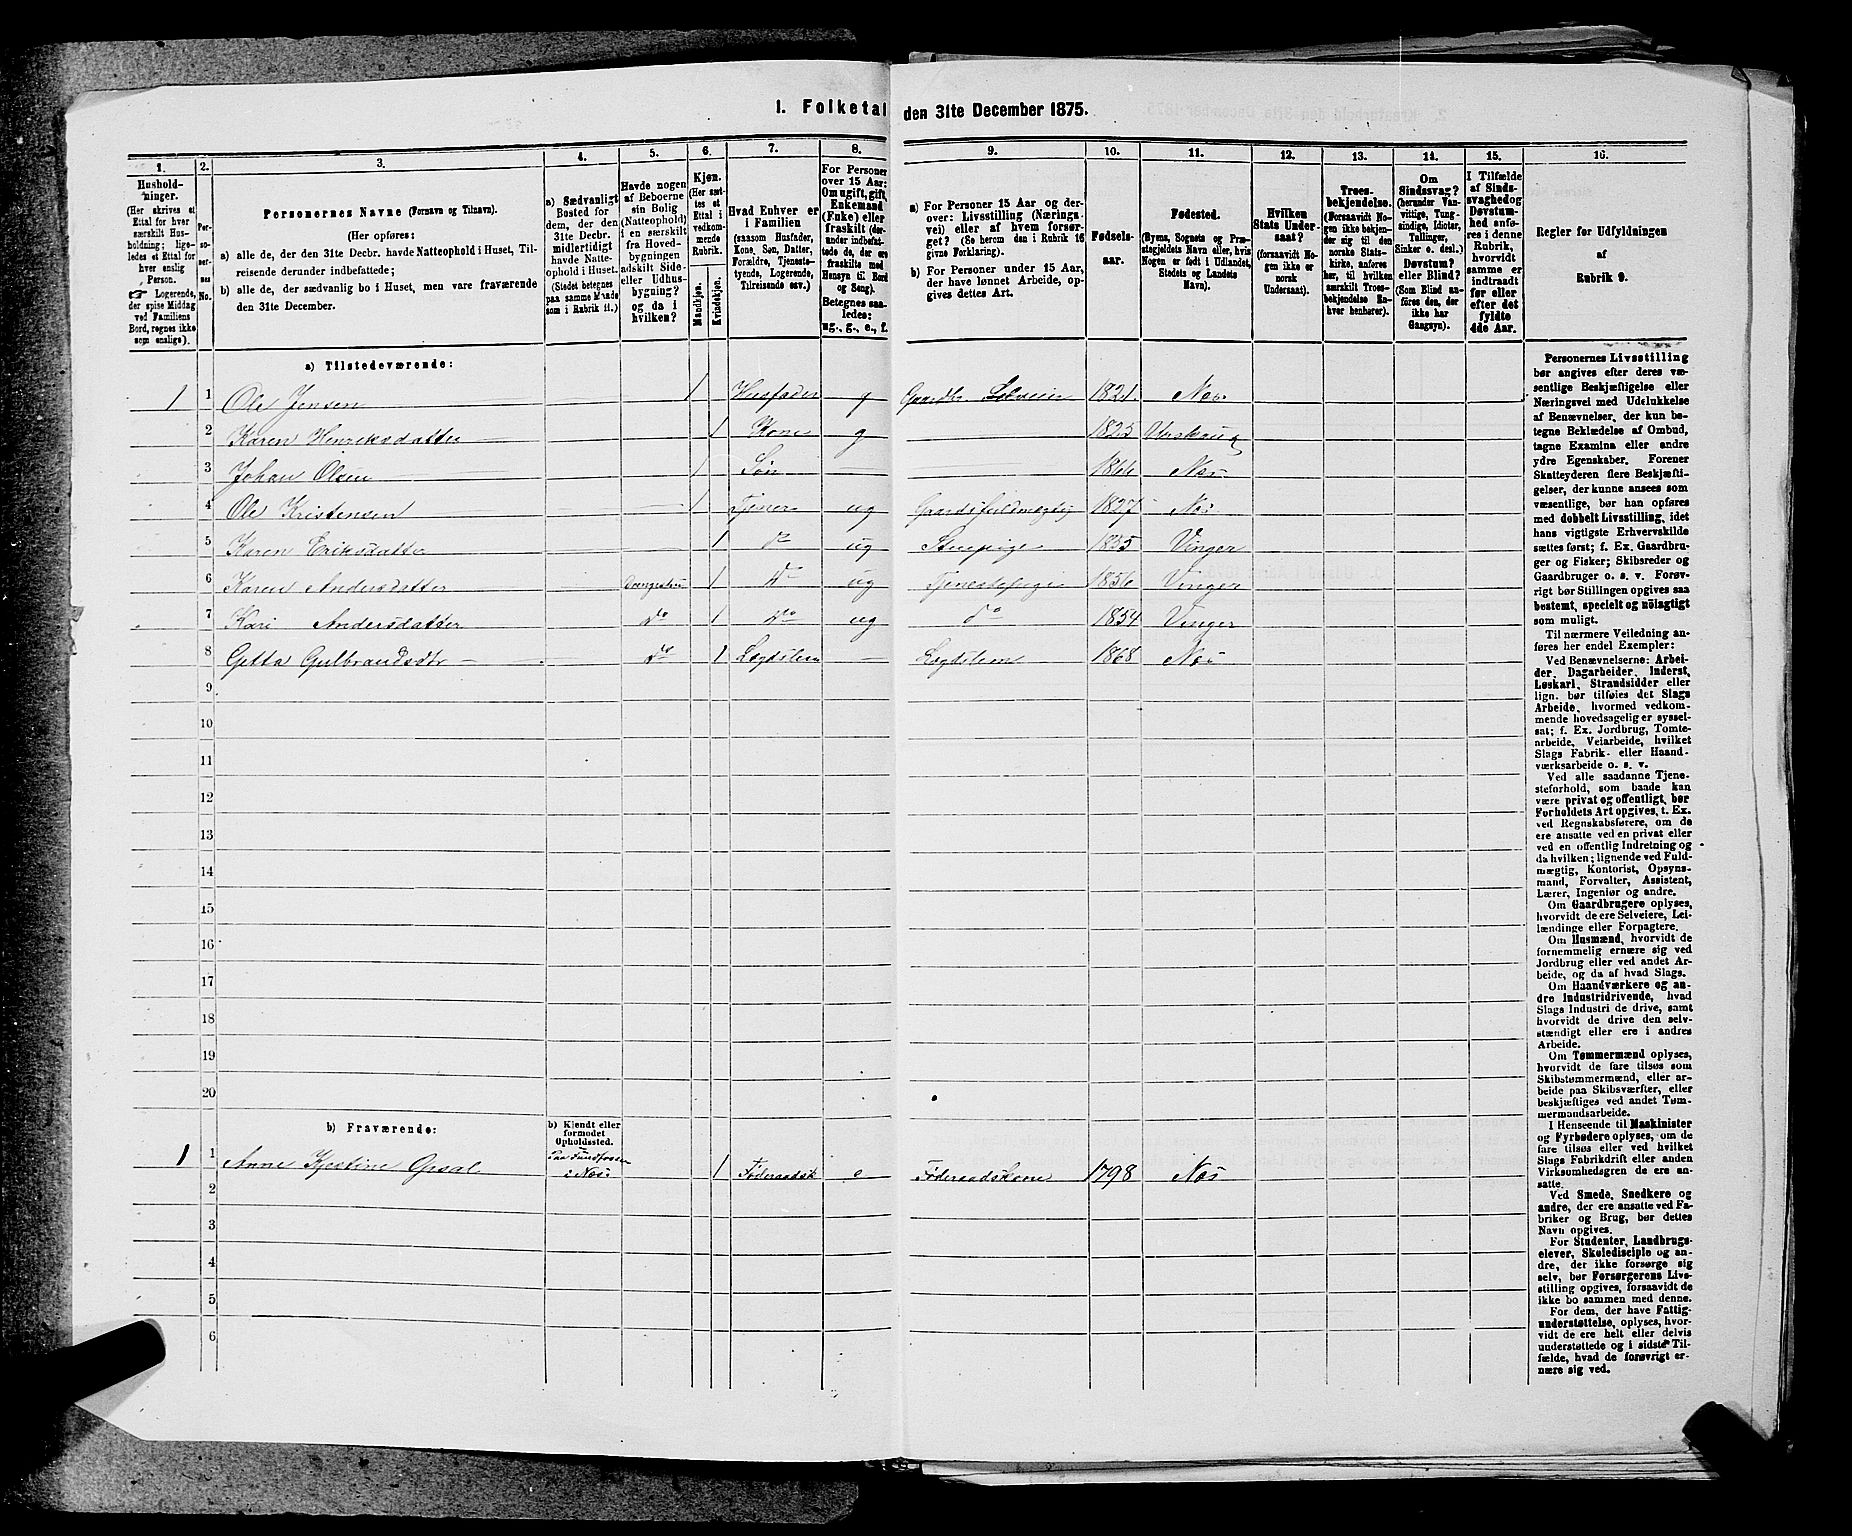 1. Folketal den 31te December 1875.
1. 2. 3. 4. 5. 6. 7. 8. 9. 10. 11. 12. 13. 14. 15. 16.
Hushold-
ninger.
(Her skrives et
Ettal for hver
særskilt Hus-
holdning; lige-
ledes et Ettal for
hver enslig
Person.
☞ Logerende,
der spise Middag
ved Familiens
Bord, regnes ikke
som enslige).
Per-
so-
ner-
nes
No.
Personernes Navne (Fornavn og Tilnavn).
(Her opføres:
a) alle de, der den 31te Decbr. havde Natteophold i Huset, Til-
reisende derunder indbefattede;
b) alle de, der sædvanlig bo i Huset, men vare fraværende
den 31te December.
a) Sædvanligt
Bosted for
dem, der den
31te Decbr.
midlertidigt
havde Natte-
ophold i Huset.
(Stedet betegnes
paa samme Maade
som i Rubrik 11.)
Havde nogen
af Beboerne
sin Bolig
(Natteophold)
i en særskilt
fra Hoved-
bygningen
adskilt Side-
eller Udhus-
bygning?
og da i
hvilken?
Kjøn.
(Her sæt-
tes et
Ettal i
vedkom-
mende
Rubrik.
Mandkjøn.
Kvindekjøn.
Hvad Enhver er
i Familien
(saasom Husfader,
Kone, Søn, Datter,
Forældre, Tjeneste-
tyende, Logerende,
Tilreisende osv.)
For Personer
over 15 Aar:
Om ugift, gift,
Enkemand
(Enke) eller
fraskilt (der-
under indbefat-
tede de, der ere
fraskilte med
Hensyn til Bord
og Seng).
Betegnes saa-
ledes:
ug., g., e., f.
a) For Personer 15 Aar og der-
over: Livsstilling (Nærings-
vei) eller af hvem forsør-
get? (Se herom den i Rubrik 16
givne Forklaring).
b) For Personer under 15 Aar,
der have lønnet Arbeide, op-
gives dettes Art.
Fødsels-
aar.
Fødested.
(Byens, Sognets og Præ-
stegjeldets Navn eller, hvis
Nogen er født i Udlandet,
Stedets og Landets
Navn).
Hvilken
Stats Under-
saat?
(forsaavidt No-
gen ikke er
norsk
Undersaat).
Troes-
bekjendelse.
(Forsaavidt No-
gen ikke bekjen-
der sig til den
norske Stats-
kirke, anføres
her, til hvilken
særskilt Troes-
bekjendelse En-
hver henhører).
Om
Sindssvag?
(herunder Van-
vittige, Tung-
sindige, Idioter,
Tullinger,
Sinker o. desl.)
Døvstum?
eller Blind?
(Som Blind an-
føres den, der
ikke har
Gangsyn).
I Tilfælde
af Sinds-
svaghed og
Døvstum-
hed anfø-
res i denne
Rubrik,
hvorvidt
samme er
indtraadt
før eller
efter det
fyldte
4de Aar.
Regler for Udfyldningen
af
Rubrik 9.
a) Tilstedeværende:
1 1 Ole Jensen 1 Husfader g Gaardbr. Selveier 1821. Næs
2 Karen Henriksdatter 1 Kone g 1825 Urskoug
3 Johan Olsen 1 Søn 1866 Næs
4 Ole Kristensen 1 Tjener ug Gaardsfuldmegtig 1827 Næs
5 Karen Eriksdatter 1 do ug Stuepige 1835 Vinger
6 Karen Andersdatter 1 Do ug Tjenestepige 1856 Vinger
7 Kari Andersdatter Do 1 Do ug do 1854 Vinger
8 Getta Gulbrandsdtr Do 1 Lægdslem Lægdslem 1868 Næs
9
10
11
12
13
14
15
16
17
18
19
20
b) Fraværende:
b) Kjendt eller
formodet
Opholdssted.
1 1 Anne Kjestine i Næs 1 Føderaadsk e Føderaadskone 1798 Næs
2
3
4
5
6
Personernes Livsstilling
bør angives efter deres væ-
sentlige Beskjæftigelse eller
Næringsvei med Udelukkelse
af Benævnelser, der kun be-
tegne Beklædelse af Ombud,
tagne Examina eller andre
ydre Egenskaber. Forener
Skatteyderen flere Beskjæfti-
gelser, der kunne ansees som
væsentlige, bør han opføres
med dobbelt Livsstilling, idet
hans vigtigste Erhvervskilde
sættes først; f. Ex. Gaardbru-
ger og Fisker; Skibsreder og
Gaardbruger o. s. v. Forøv-
rigt bør Stillingen opgives saa
bestemt, specielt og nøiagtigt
som muligt.
Til nærmere Veiledning an-
føres her endel Exempler:
Ved Benævnelserne: Arbei-
der, Dagarbeider, Inderst,
Løskarl, Strandsidder eller
lign. bør tilføies det Slags
Arbeide, hvormed vedkom-
mende hovedsagelig er syssel-
sat; f. Ex. Jordbrug, Tomte-
arbeide, Veiarbeide, hvilket
Slags Fabrik- eller Haand-
værksarbeide o. s. v.
Ved alle saadanne Tjene-
steforhold, som baade kan
være privat og offentligt, bør
Forholdets Art opgives, t. Ex.
ved Regnskabsførere, om de
ere ansatte ved en privat eller
ved en offentlig Indretning og
da hvilken; lignende ved Fuld-
mægtig, Kontorist, Opsyns-
mand, Forvalter, Assistent,
Lærer, Ingeniør og andre.
Om Gaardbrugere oplyses,
hvorvidt de ere Selveiere, Lei-
lændinge eller Forpagtere.
Om Husmænd, hvorvidt de
fornemmelig ernære sig ved
Jordbrug eller ved andet Ar-
beide, og da af hvad Slags.
Om Haandværkere og an-
dre Industridrivende, hvad
Slags Industri de drive, samt
hvorvidt de drive den selv-
stændigt eller ere i andres
Arbeide.
Om Tømmermænd oplyses,
hvorvidt de fare tilsøs som
Skibstømmermænd, eller ar-
beide paa Skibsværfter, eller
beskjæftiges ved andet Tøm-
mermandsarbeide.
I Henseende til Maskinister
og Fyrbødere oplyses, om de
fare tilsøs eller ved hvilket
Slags Fabrikdrift eller anden
Virksomhedsgren de ere an-
satte.
Ved Smede, Snedkere og
andre, der ere ansatte ved Fa-
briker og Brug, bør dettes
Navn opgives.
For Studenter, Landbrugs-
elever, Skoledisciple og an-
dre, der ikke forsørge sig
selv, bør Forsørgerens Livs-
stilling opgives, forsaavidt de
ikke bo sammen med denne.
For dem, der have Fattig-
understøttelse, oplyses, hvor-
vidt de ere helt eller delvis
understøttede og i sidste Til-
fælde, hvad de forøvrigt er-
nære sig ved.